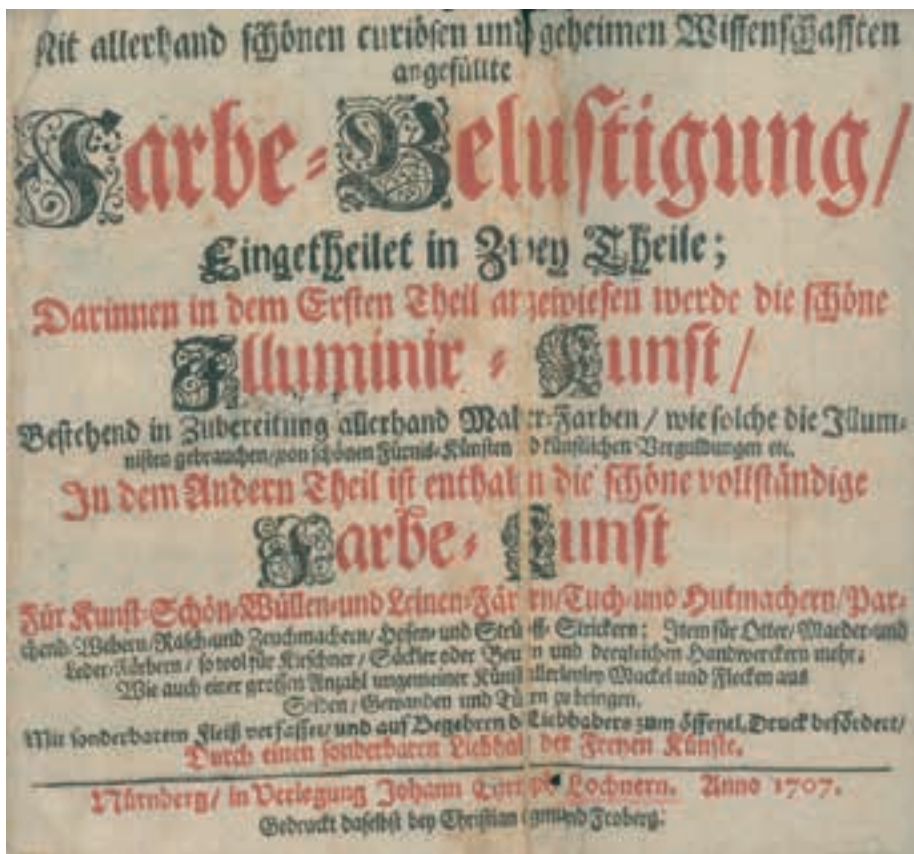 Mit allerhand schönen curiösen und geheimen Wissenschafften
angefüllte
Farbe-Belustigung/
Eingetheilet in Zwey Theile;
Darinnen in dem Ersten Theil angewiesen werde die schöne
Illuminir-Kunst/
Bestehend in Zubereitung allerhand Mahler-Farben/ wie solche die Illumi-
nisten gebrauchen/von schönen Fürnis-Künsten künstlichen Verguldungen etc.
In dem Andern Theil ist enthalten die schöne vollständige
Farbe-Kunst
Für Kunst-Schön-Wüllen-und Leinen-Färbern/Tuch-und Hutmachern/Par-
chend-Webern/Rasch-und Zeuchmachern/ Hosen-und Strümpff-Strickern; Item für Otter/Maeder-und
Leder-Färbern/ so wol für Kirschner/ Säckler oder Beutlern und dergleichen Handwerckern mehr.
Wie auch einer grossen Anzahl ungemeiner Künste allerleyley Mackel und Flecken aus
Seiden/ Gewanden und Tüchern zu bringen.
Mit sonderbarem Fleiß verfasset/ und auf Begehren Liebhabers zum öffentl. Druck befördert/
Durch einen sonderbaren Liebhaber der Freyen Künste.
Nürnberg/ in Verlegung Johann Christoph Lochnern. Anno 1707.
Gedruckt daselbst bey Christian Sigmund Froberg.